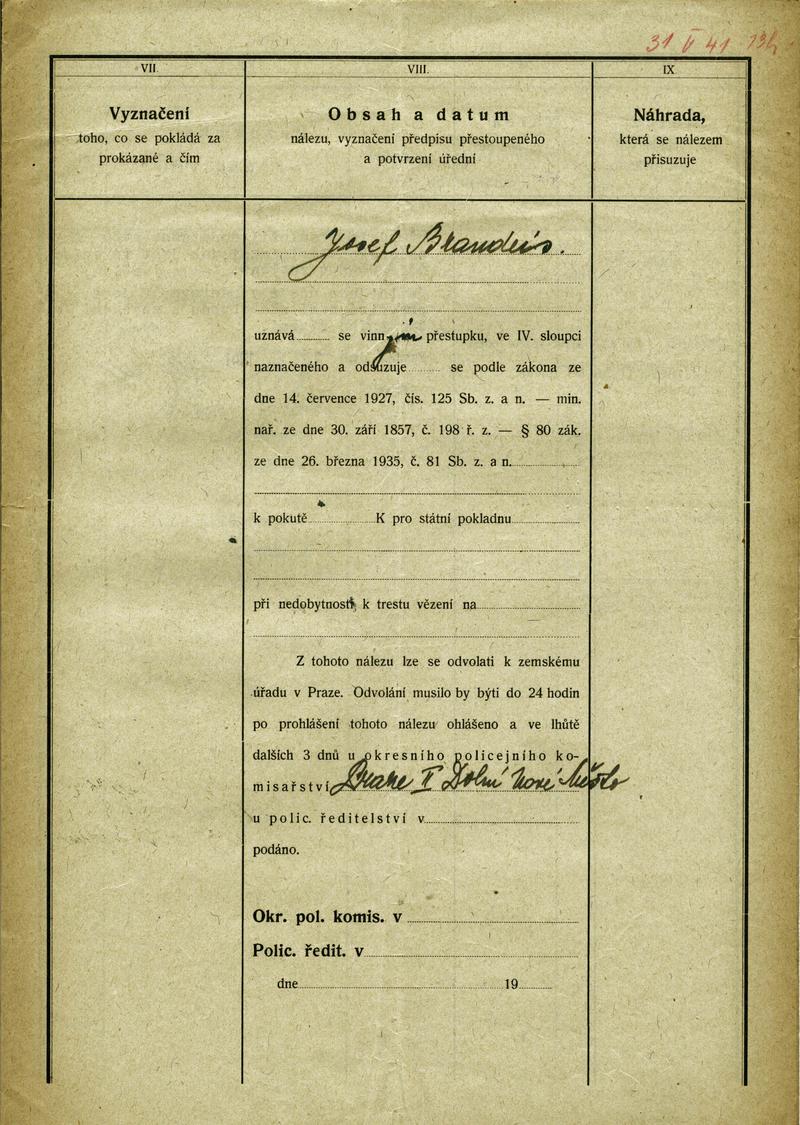 31 V 41 13h
VII.
VIII.
IX
Vyznačení
toho, co se pokládá za
prokázané a čím
Obsah a datum
nálezu, vyznačení předpisu přestoupeného
a potvrzení úřední
Náhrada,
která se nálezem
přisuzuje
Josef Brandeis.
uznává se vinným přestupku, ve IV. sloupci
naznačeného a odsuzuje se podle zákona ze
dne 14. července 1927, čís. 125 Sb. z. a n. — min.
nař. ze dne 30. září 1857, č. 198 ř. z. — § 80 zák.
ze dne 26. března 1935, č. 81 Sb. z. a n.
k pokutě K pro státní pokladnu
při nedobytnosti k trestu vězení na
Z tohoto nálezu lze se odvolati k zemskému
úřadu v Praze. Odvolání musilo by býti do 24 hodin
po prohlášení tohoto nálezu ohlášeno a ve lhůtě
dalších 3 dnů u okresního policejního ko-
misařství Dolní Nové Město
u polic. ředitelství v
podáno.
Okr. pol. komis. v
Polic. ředit. v
dne 19